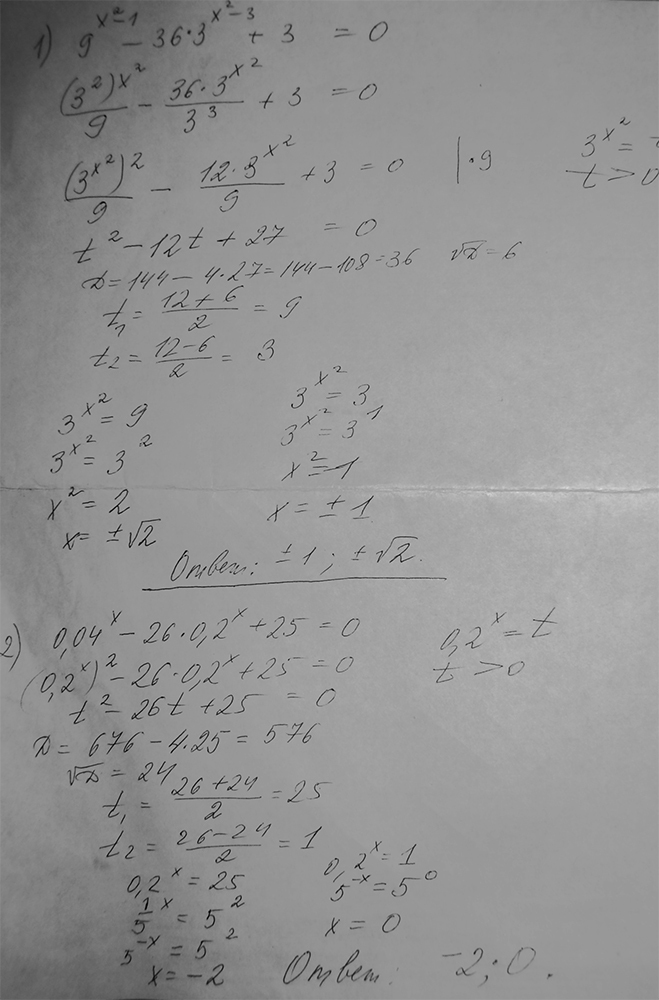 1) 9^(x²-1) - 36·3^(x²-3) + 3 = 0
(3²)^x²/9 - 36·3^x²/3³ + 3 = 0
(3^x²)²/9 - 12·3^x²/9 + 3 = 0 |·9 3^x² =
t > 0
t² - 12t + 27 = 0
D = 144 - 4·27 = 144 - 108 = 36 √D = 6
t₁ = (12+6)/2 = 9
t₂ = (12-6)/2 = 3
3^x² = 9 3^x² = 3
3^x² = 3² 3^x² = 3¹
x² = 2 x² = 1
x = ±√2 x = ±1
Ответ: ±1; ±√2.
2) 0,04^x - 26·0,2^x + 25 = 0 0,2^x = t
(0,2^x)² - 26·0,2^x + 25 = 0 t > 0
t² - 26t + 25 = 0
D = 676 - 4·25 = 576
√D = 24
t₁ = (26+24)/2 = 25
t₂ = (26-24)/2 = 1
0,2^x = 25 0,2^x = 1
1/5^x = 5² 5^-x = 5⁰
5^-x = 5² x = 0
x = -2 Ответ: -2; 0.